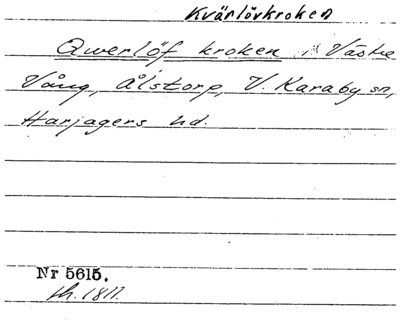 Kvärlövkroken
Qwerlöf kroken i Västre
Vång, Ålstorp, V. Karaby sn,
Harjagers hd.
Nr 5615.
1811.